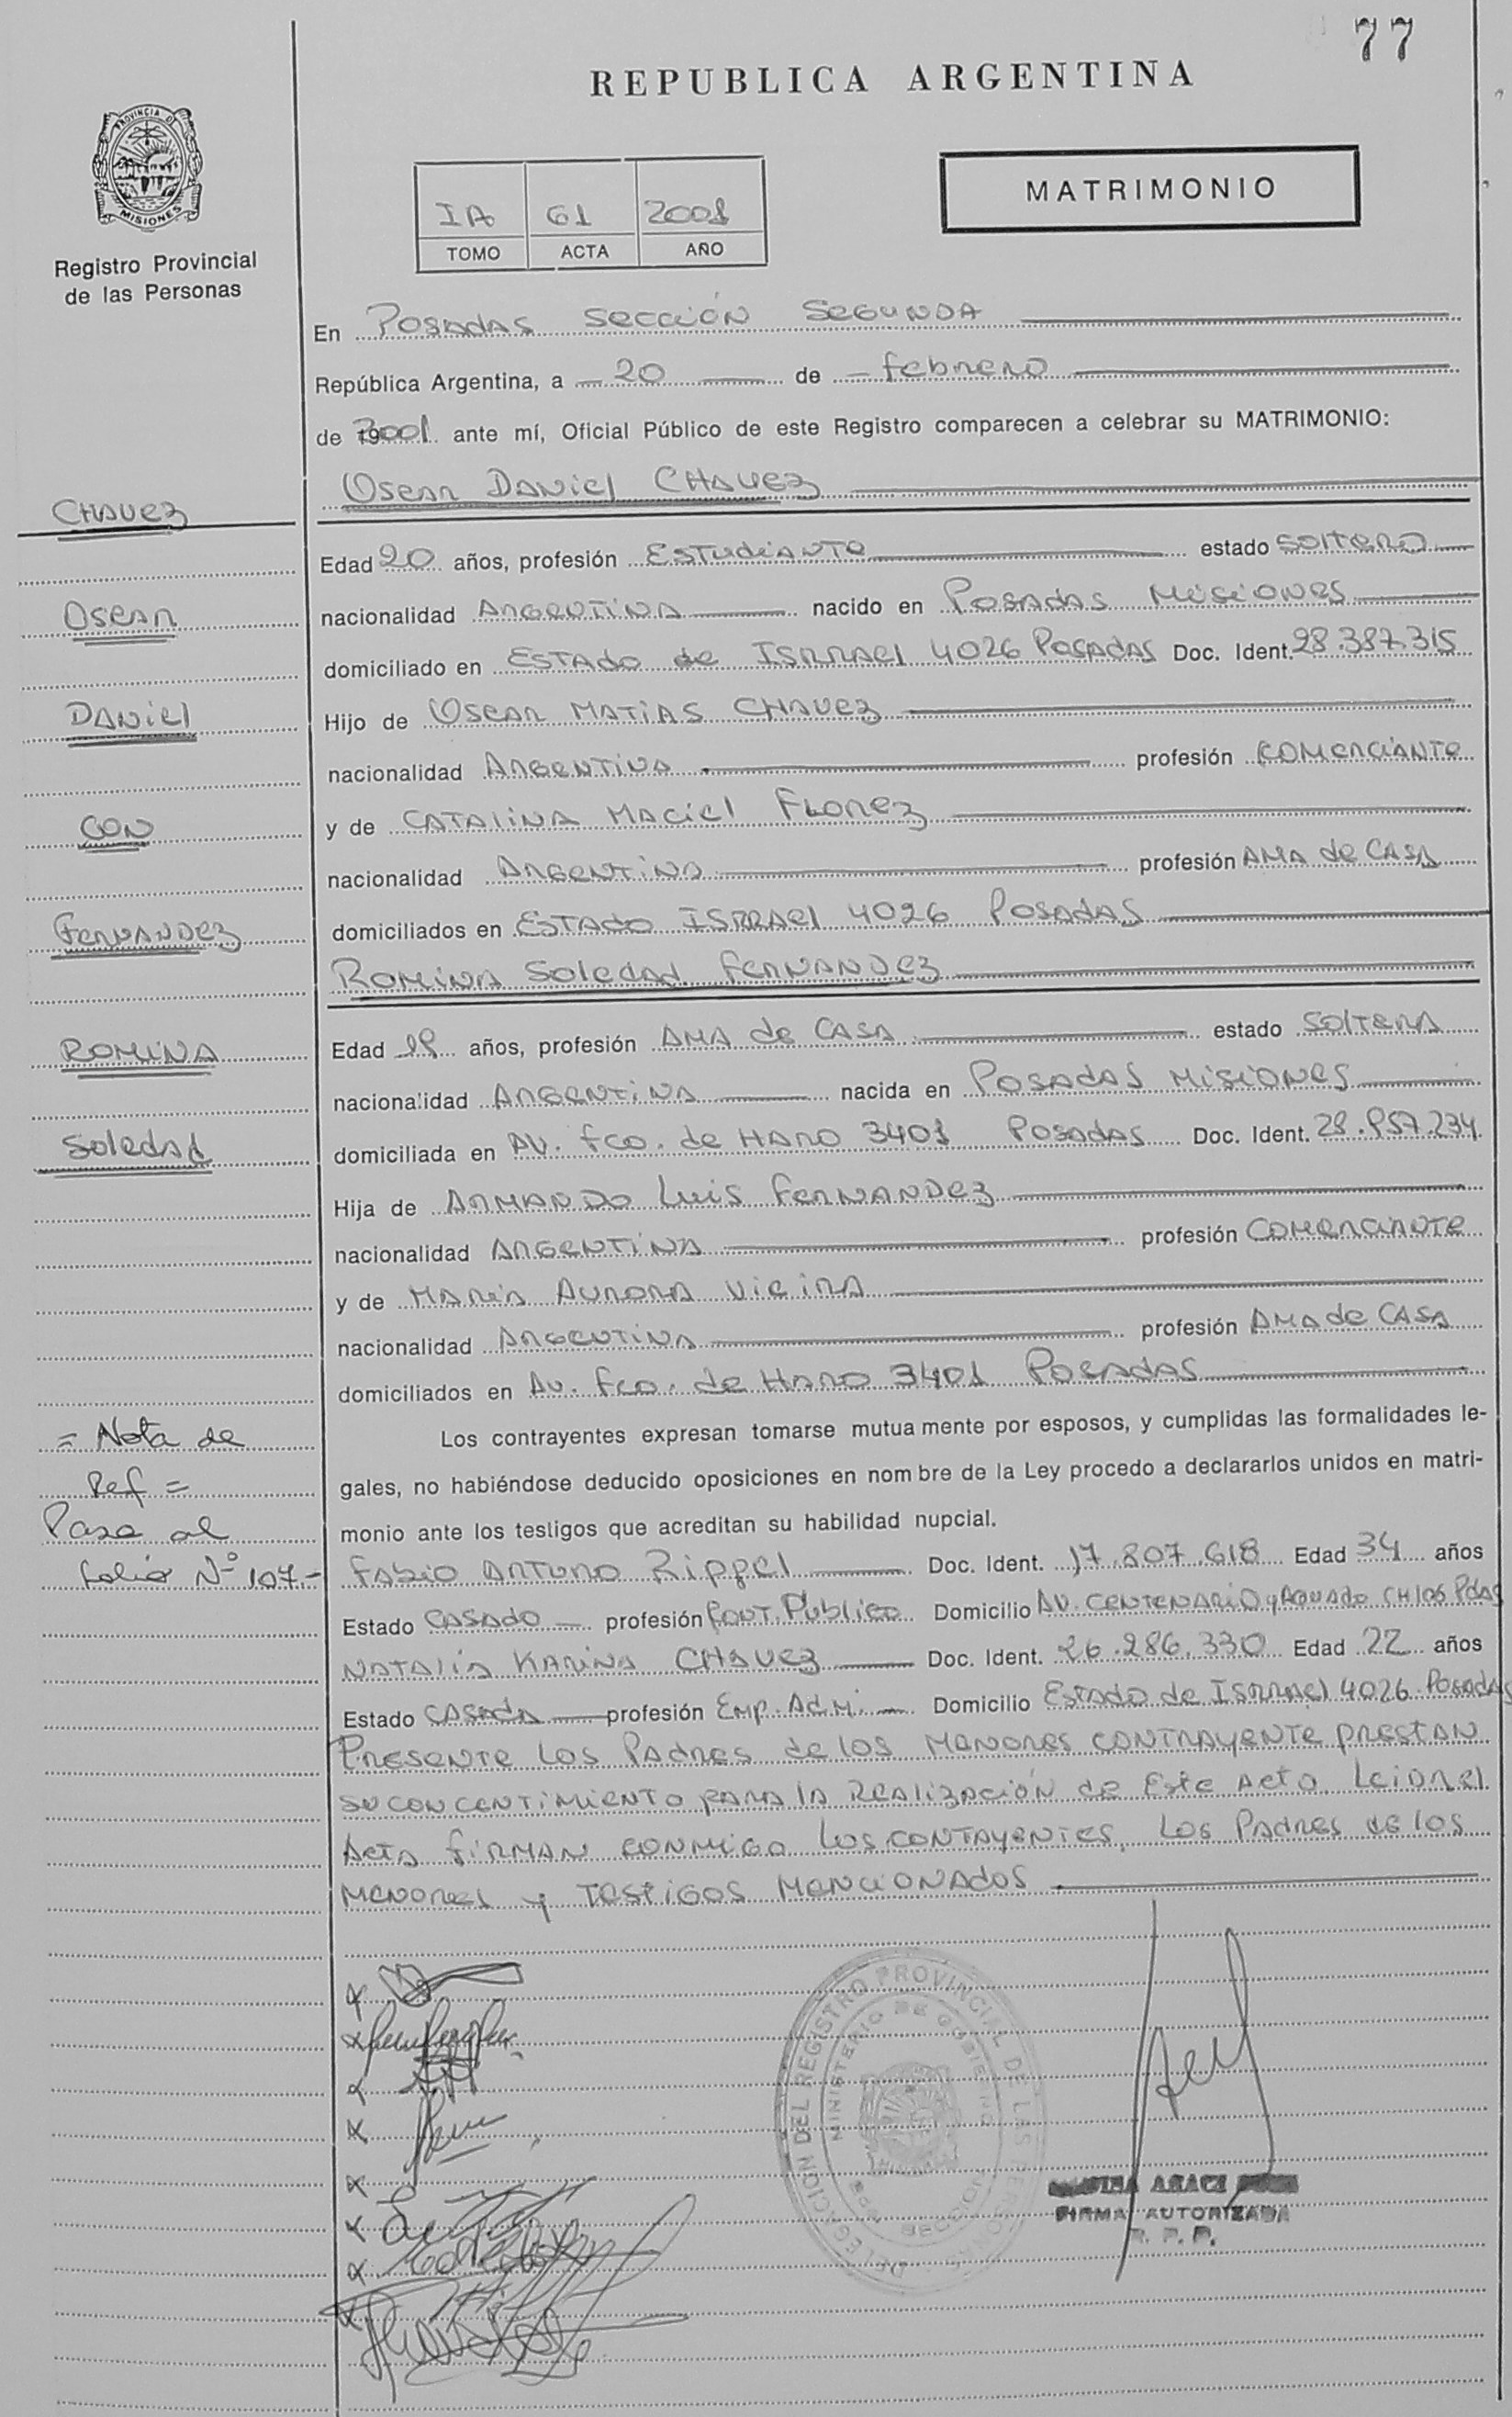 77
REPUBLICA ARGENTINA
PROVINCIA DE
MISIONES
Registro Provincial
de las Personas
IA 61 2001
TOMO ACTA AÑO
MATRIMONIO
En Posadas Sección Segunda
República Argentina, a 20 de febrero
de 2001 ante mí, Oficial Público de este Registro comparecen a celebrar su MATRIMONIO:
Oscar Daniel CHAVEZ
CHAVEZ
Edad 20 años, profesión Estudiante estado soltero
Oscar
nacionalidad Argentina nacido en Posadas Misiones
domiciliado en Estado de Isrrael 4026 Posadas Doc. Ident. 28.387.315
Daniel
Hijo de Oscar Matias Chavez
nacionalidad Argentina profesión comerciante
CON
y de Catalina Maciel Florez
nacionalidad Argentina profesión Ama de casa
Fernandez
domiciliados en Estado Isrrael 4026 Posadas
Romina Soledad Fernandez
Romina
Edad 19 años, profesión Ama de casa estado soltera
nacionalidad Argentina nacida en Posadas Misiones
Soledad
domiciliada en Av. Fco. de Haro 3401 Posadas Doc. Ident. 28.957.234
Hija de Armando Luis Fernandez
nacionalidad Argentina profesión Comerciante
y de Maria Aurora Vieira
nacionalidad Argentina profesión Ama de casa
domiciliados en Av. Fco. de Haro 3401 Posadas
= Nota de
Ref =
Pasa al
folio Nº 107.-
Los contrayentes expresan tomarse mutuamente por esposos, y cumplidas las formalidades le-
gales, no habiéndose deducido oposiciones en nombre de la Ley procedo a declararlos unidos en matri-
monio ante los testigos que acreditan su habilidad nupcial.
Fabio Arturo Rippel Doc. Ident. 17.807.618 Edad 34 años
Estado casado profesión Cont. Publico Domicilio Av. Centenario y Aguado CH106 Pdas
Natalia Karina Chavez Doc. Ident. 26.286.330 Edad 22 años
Estado casada profesión Emp. Adm. Domicilio Estado de Isrrael 4026 Posadas
Presente los Padres de los menores contrayente prestan
su concentimiento para la realización de este acto. Leida el
Acta firman conmigo los contayentes, los Padres de los
menores y testigos mencionados
DELEGACION DEL REGISTRO PROVINCIAL DE LAS PERSONAS
MINISTERIO DE GOBIERNO
FIRMA AUTORIZADA
R. P. P.